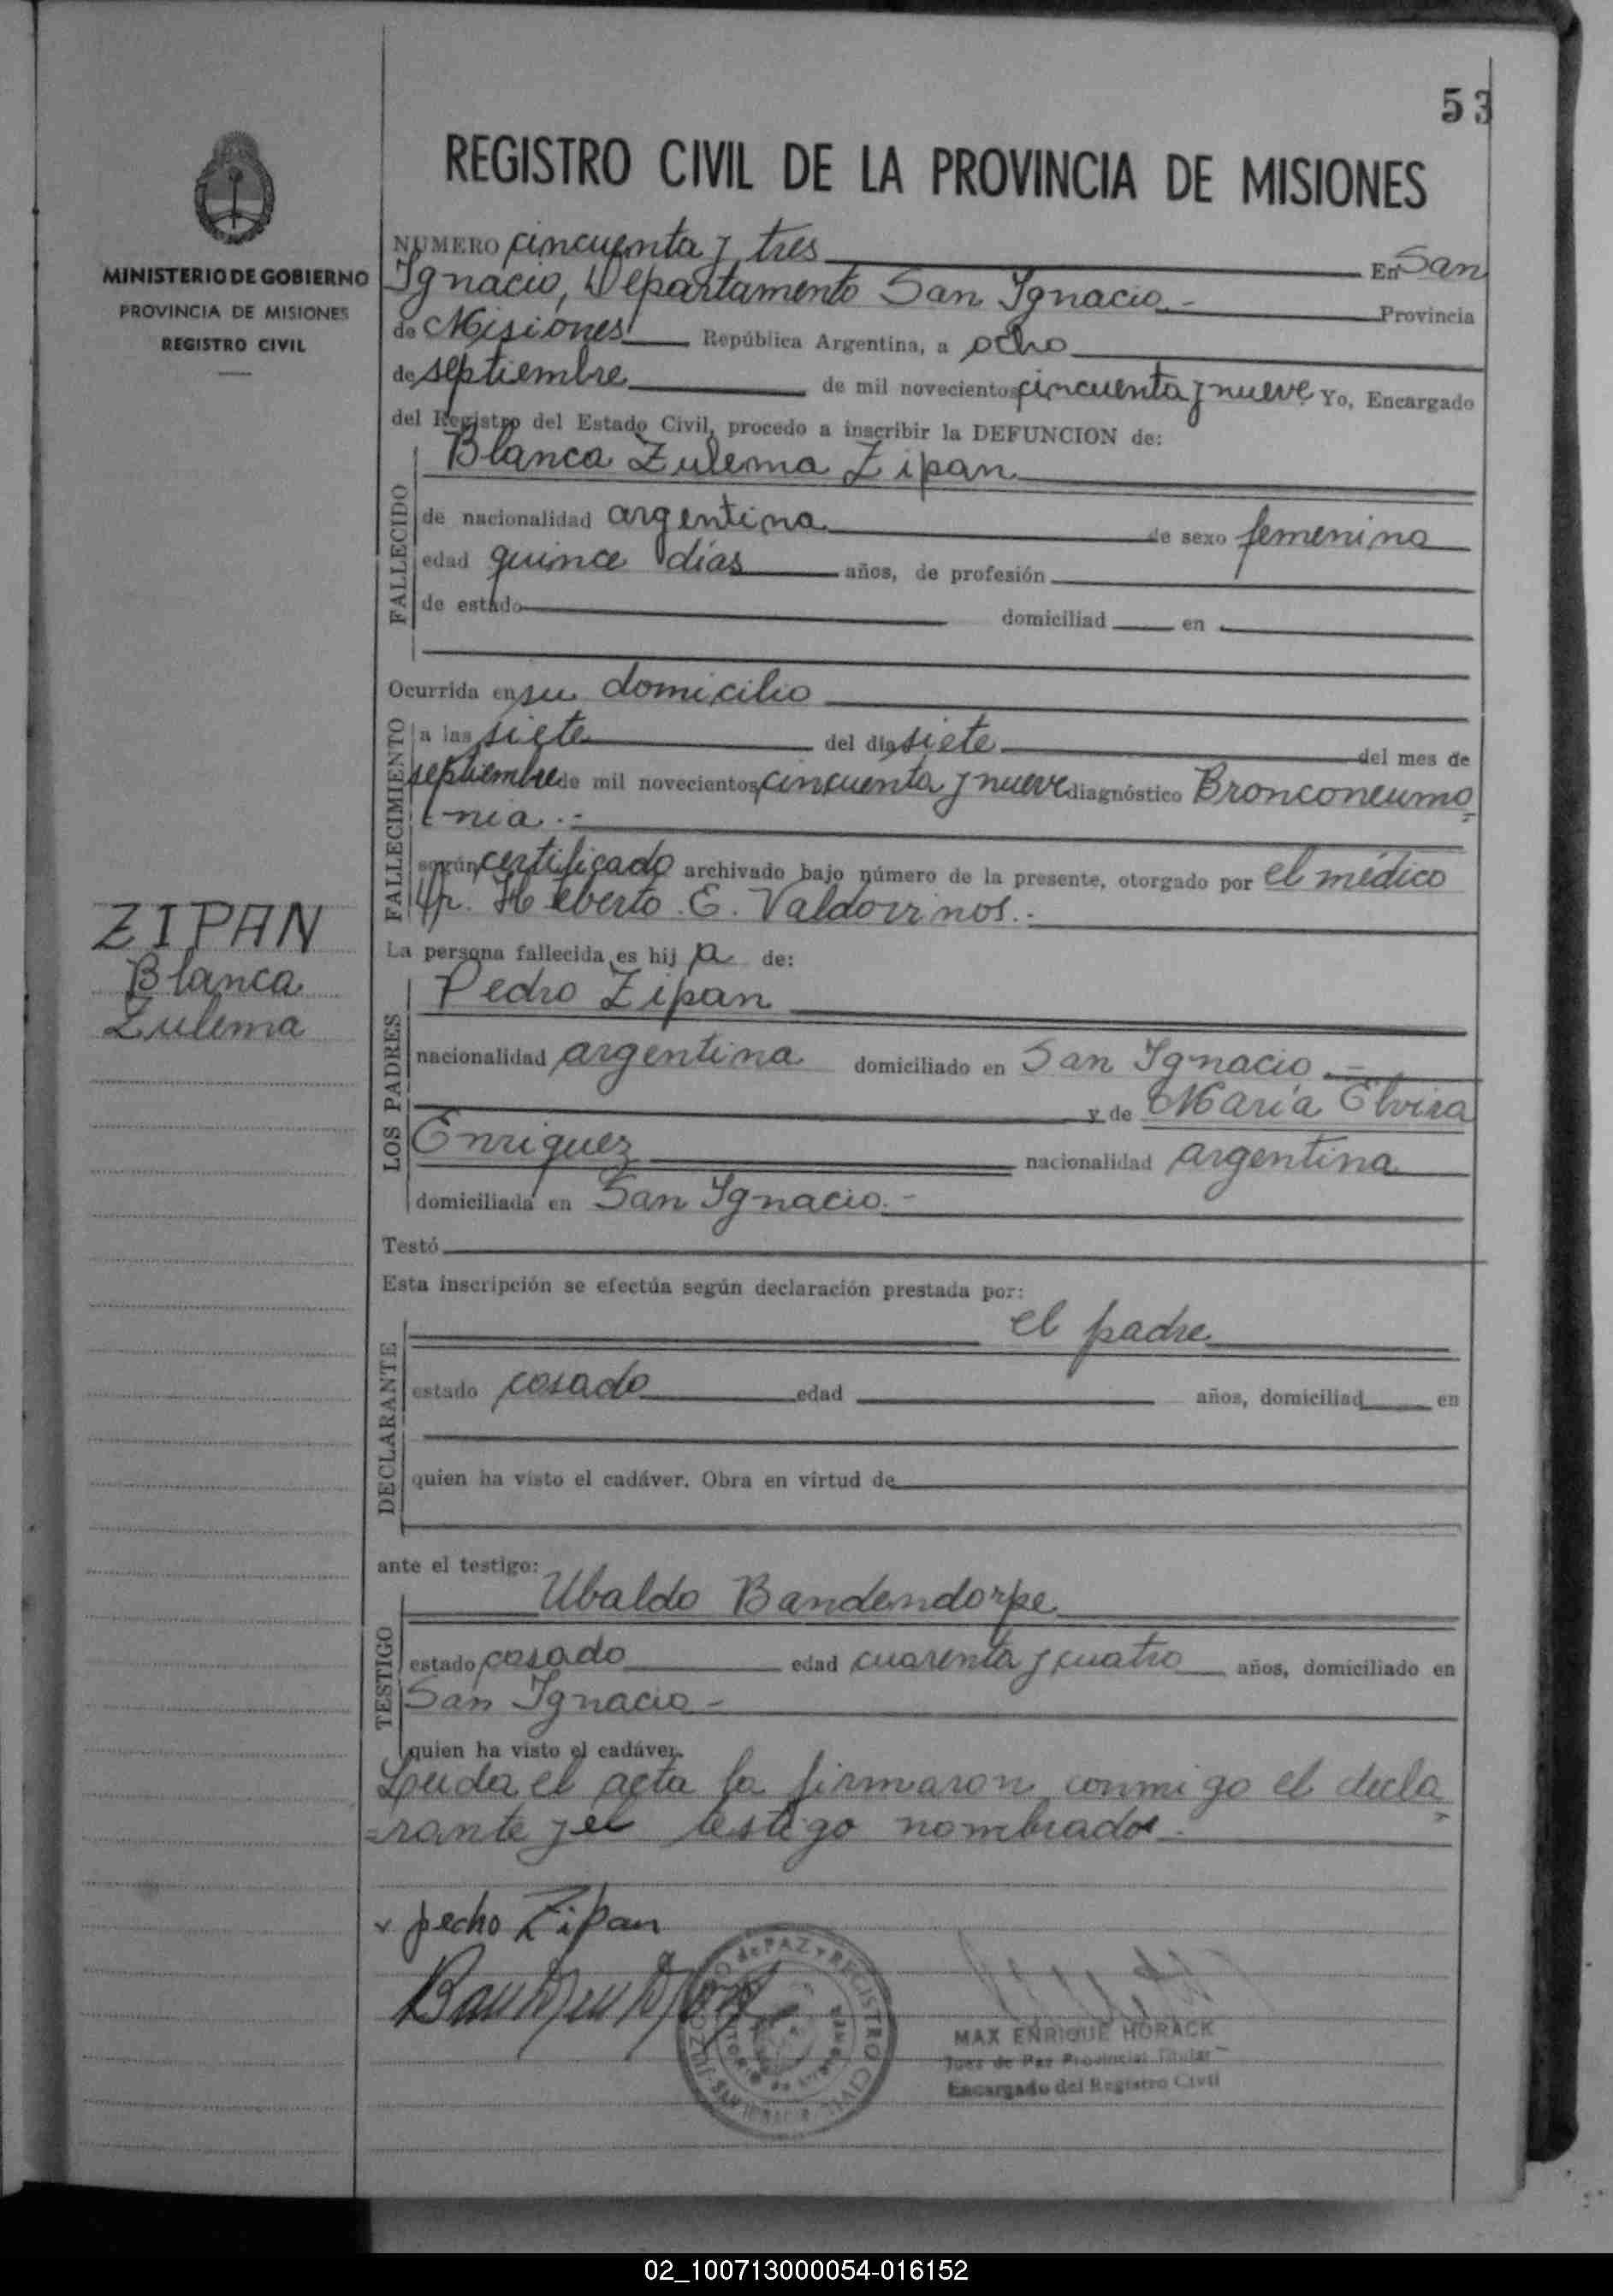 53
REGISTRO CIVIL DE LA PROVINCIA DE MISIONES
MINISTERIO DE GOBIERNO
PROVINCIA DE MISIONES
REGISTRO CIVIL
NUMERO cincuenta y tres En San
Ignacio, Departamento San Ignacio.- Provincia
de Misiones República Argentina, a ocho
de septiembre de mil novecientos cincuenta y nueve Yo, Encargado
del Registro del Estado Civil, procedo a inscribir la DEFUNCION de:
Blanca Zulema Zipan
FALLECIDO
de nacionalidad argentina de sexo femenino
edad quince días años, de profesión
de estado domiciliad en
Ocurrida en su domicilio
FALLECIMIENTO
a las siete del día siete del mes de
septiembre de mil novecientos cincuenta y nueve diagnóstico Bronconeumo
nia.-
según certificado archivado bajo número de la presente, otorgado por el médico
Dr. Helberto E. Valdovinos.-
ZIPAN
Blanca
Zulema
La persona fallecida es hij a de:
LOS PADRES
Pedro Zipan
nacionalidad argentina domiciliado en San Ignacio.-
y de María Elvira
Enriquez nacionalidad argentina
domiciliada en San Ignacio.-
Testó
Esta inscripción se efectúa según declaración prestada por:
DECLARANTE
el padre
estado casado edad años, domiciliad en
quien ha visto el cadáver. Obra en virtud de
ante el testigo:
TESTIGO
Ubaldo Bandendorpe
estado casado edad cuarenta y cuatro años, domiciliado en
San Ignacio-
quien ha visto el cadáver.
Leida el acta la firmaron conmigo el decla
=rante y el testigo nombrados.-
pedro Zipan
MAX ENRIQUE HORACK
Juez de Paz Provincial Titular
Encargado del Registro Civil
02_100713000054-016152